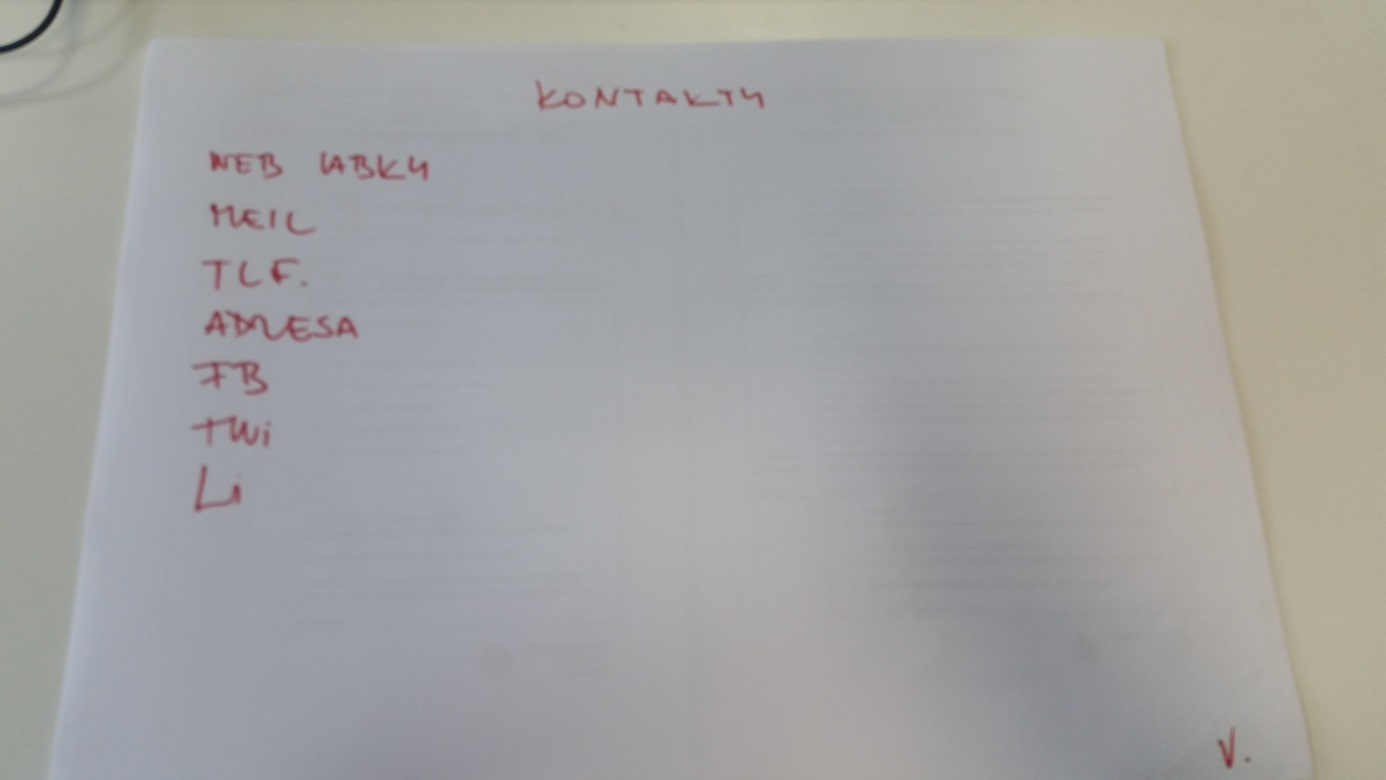 KONTAKTY
WEB LABKY
MEIL
TLF.
ADRESA
FB
TWi
Li
V.